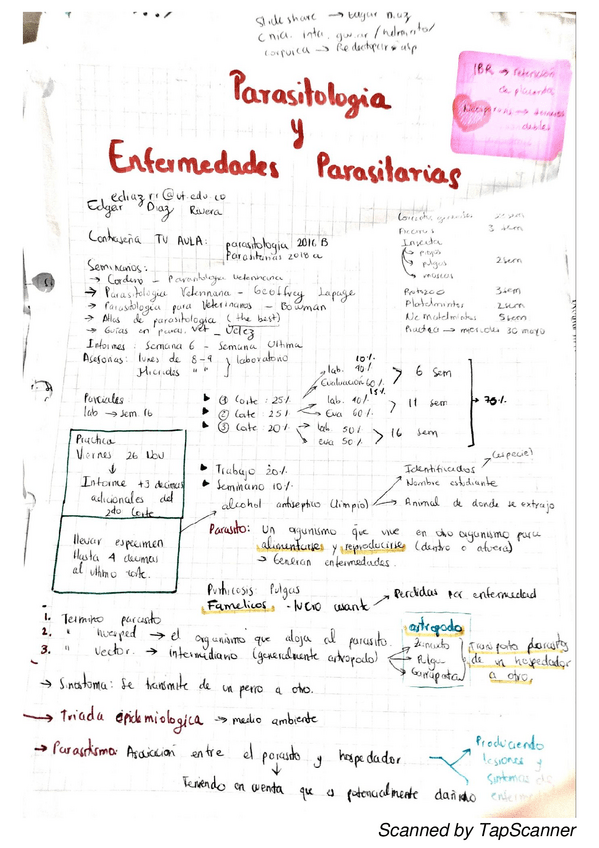 Slide share → Edgar Diaz
Cnica. inta. gov.ar /
corpoica →
IBR → retencion
de placenta
→ terneros
debiles
Parasitologia
y
Enfermedades Parasitarias
ediaz rr @ut.edu.co
Edgar Diaz Rivera
Contraseña TU AULA: parasitologia 2016 B
Parasitarias 2018 a
generales 2 sem
3 sem
Insecta
→ piojos
→ pulgas 2 sem
→ moscas
Protozoo 3 sem
Platelmintos 2 sem
Nematelmintos 5 sem
Practica → miercoles 30 mayo
Seminarios:
→ Cordero - Parasitologia veterinaria
→ Parasitologia Veterinaria - Geoffrey Lapage
→ Parasitologia para Veterinarios - Bowman
→ Atlas de parasitologia (the best)
→ Guias en paras. vet _ Velez
Informes: Semana 6 - Semana Ultima
Asesorias: lunes de 8-9 } laboratorio
Miercoles " "
Parciales
lab → sem 16
① Corte: 25%
10%
lab. 10%
Evaluación 60%
> 6 sem
② Corte: 25%
15%
lab. 10%
Eva 60%
> 11 sem
③ Corte: 20%
lab 50%
eva 50%
> 16 sem
→ 70%
Practica
Viernes 26 Nov
↓
Informe +3 decimas
adicionales del
2do Corte
llevar especimen
Hasta 4 decimas
al ultimo corte.
Trabajo 20%
Seminario 10%
alcohol antiseptico (limpio)
Identificados (especie)
Nombre estudiante
Animal de donde se extrajo
Parasito: Un organismo que vive en otro organismo para
alimentarse y reproducirse (dentro o afuera)
→ Generan enfermedades.
Pulgas
Famelicos - lucro → Perdidas por enfermedad
1. Termino parasito
2. " huesped → el organismo que aloja al parasito.
3. " vector. → intermediario (generalmente artropodo)
artropodo
Zancudo
Pulga
Garrapata
Transporta parasitos
de un hospedador
a otro.
→ Sinostoma: Se transmite de un perro a otro.
→ Triada epidemiologica → medio ambiente
→ Parasitismo: Asociacion entre el parasito y hospedador
↓
Teniendo en cuenta que es potencialmente dañino
Produciendo
lesiones y
sintomas de
Scanned by TapScanner